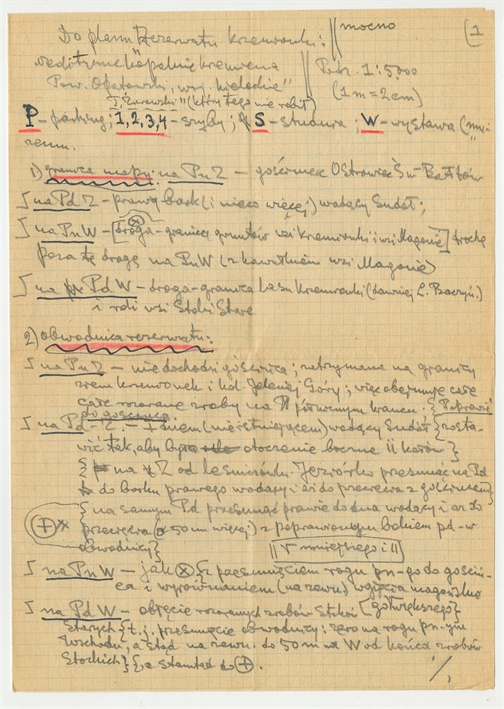 Do planu Rezerwatu Krzemionki: mocno (1
neolityczne kopalnie krzemienia
Pow. Opatowski, woj. kieleckie" Podz. 1:5000
J. Żurowski" (który tego nie robił) (1 m = 2 cm)
P - parking; 1, 2, 3, 4 - szyby; S - studnia; W - wystawa (mu-
zeum.
1) granica mapy: na PnZ - gościniec Ostrowiec Św - Bałtów
na PdZ - prawy bok (i nieco więcej) wadący Sudół;
na PnW - [droga - granica gruntów wsi Krzemionki i wsi Magonie] trochę
poza tę drogę na PnW (z kawałkiem wsi Magonie)
na PdW - droga - granica lasu Krzemionki (dawniej L. Baczyń.)
i roli wsi Stoki Stare
2) obwodnica rezerwatu:
na PnZ - nie dochodzi gościńca; zatrzymane na granicy
ziem Krzemionek i kol. Jeleniej Góry; więc obejmuje całe
całe rozorane zroby na północnym krańcu; {Poprawić
do gościńca
na Pd-Z - (nie istniejącem) wadący Sudół {zosta-
wić tak, aby było otoczenie boczne
{na Z od leśniczówki Jeziórko przesunąć na Pd
do boku prawego wadący i aż do przecięcia z gościńcem
{na samym Pd przesunąć prawie do dna wadący i aż do
przecięcia (50 m więcej) z poprawionym bokiem pd-w
obwodnicy}
mniejszego i
na PnW - jak (x) {z przesunięciem rogu pn-go do gościń-
ca i wyrównaniem (na zewn.) wgięcia magońskiego
na PdW - objęcie rozoranych zrobów Stoki {zwiększego}
Starych {t.j. przesunięcie obwodnicy: zero na rogu pn-ym
Wschodu, a stąd na zewn. do 50 m na W od końca zrobów
Stockich} {a stamtąd do (+).